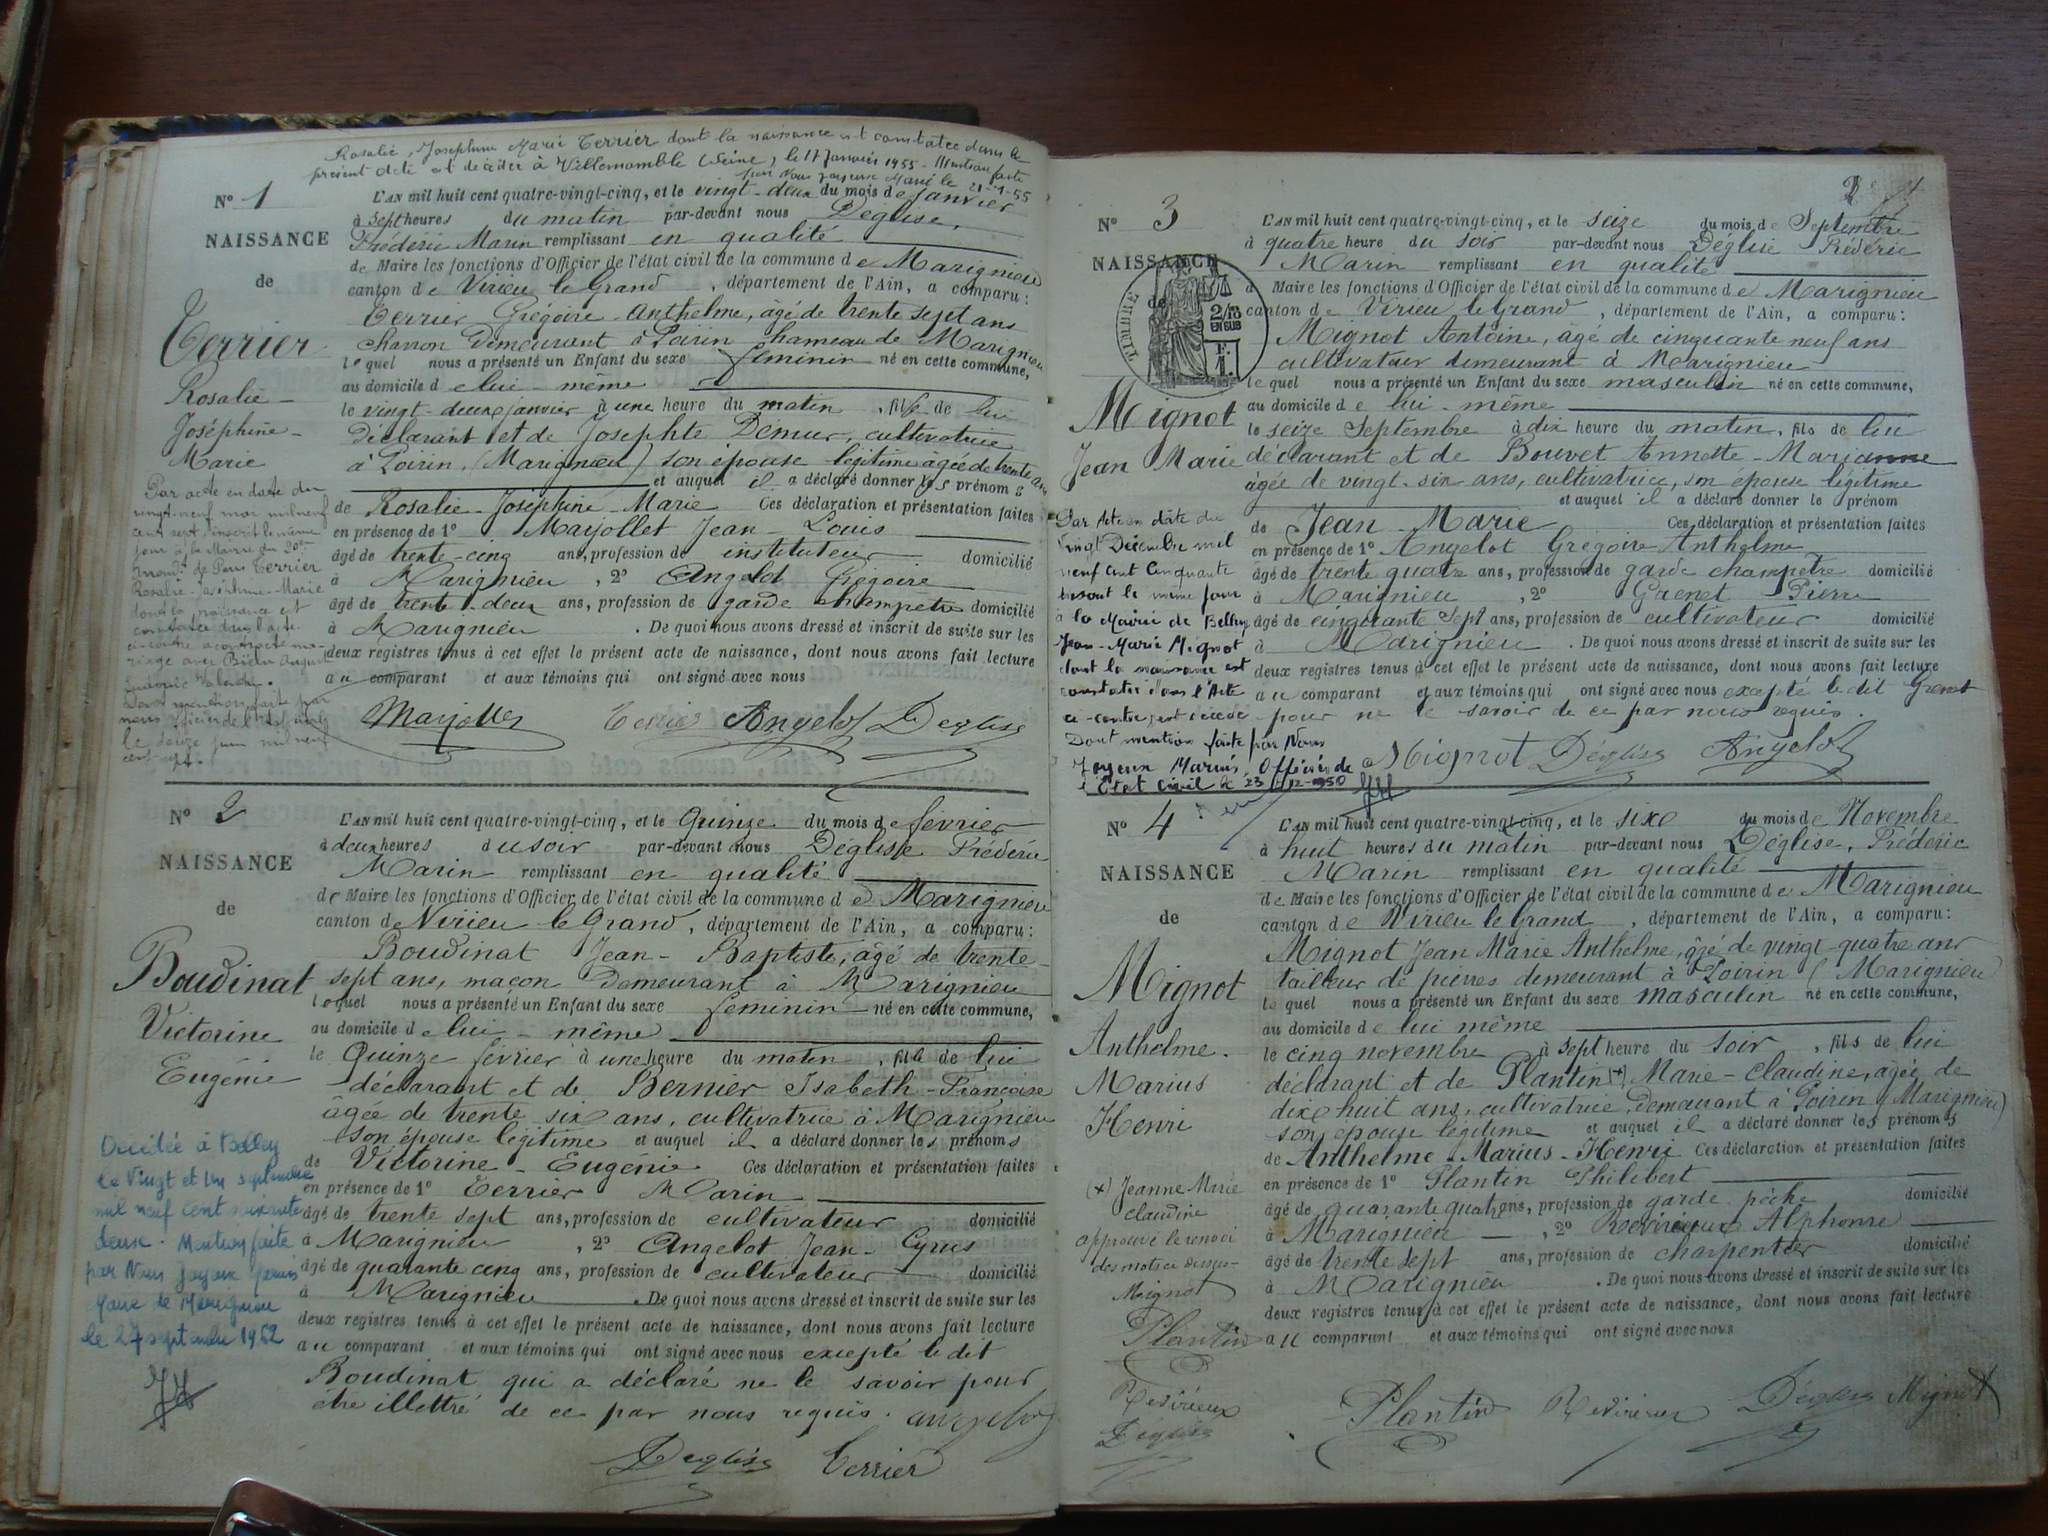 Rosalie, Josephine Marie Terrier dont la naissance est constatée dans le
présent acte est décédée à Villemomble (Seine) le 17 Janvier 1955 - Mention faite
par Nous Joyeux Marius le 21-1-55
N° 1
NAISSANCE
de
Terrier
Rosalie -
Joséphine -
Marie
Par acte en date du
vingt-neuf mai mil neuf
cent sept, inscrit le même
jour à la Mairie du 20e
arrond. de Paris Terrier
Rosalie-Joséphine-Marie
dont la naissance est
constatée dans l'acte
ci-contre a contracté ma-
riage avec
Dont mention faite par
nous officier de l'état civil
le douze juin mil neuf
cent sept.
L'AN mil huit cent quatre-vingt-cinq, et le vingt-deux du mois de Janvier
à sept heures du matin par-devant nous Déglise,
Frédéric Marin remplissant en qualité
de Maire les fonctions d'Officier de l'état civil de la commune de Marignieu
canton de Virieu le Grand, département de l'Ain, a comparu :
Terrier Grégoire-Anthelme, âgé de trente sept ans
charron demeurant à Poirin, hameau de Marignieu
lequel nous a présenté un Enfant du sexe féminin né en cette commune,
au domicile de lui-même
le vingt-deux janvier à une heure du matin, fille de lui
déclarant et de Josephte Démur, cultivatrice
à Poirin, (Marignieu) son épouse légitime âgée de trente ans
et auquel il a déclaré donner les prénoms
de Rosalie-Joséphine-Marie Ces déclaration et présentation faites
en présence de 1° Marjollet Jean-Louis
âgé de trente-cinq ans, profession de instituteur domicilié
à Marignieu, 2° Angelot Grégoire
âgé de trente-deux ans, profession de garde champetre domicilié
à Marignieu. De quoi nous avons dressé et inscrit de suite sur les
deux registres tenus à cet effet le présent acte de naissance, dont nous avons fait lecture
au comparant et aux témoins qui ont signé avec nous
Marjollet Terrier Angelot Déglise
N° 2
NAISSANCE
de
Boudinat
Victorine
Eugénie
Décédée à Belley
le vingt et un septembre
mil neuf cent soixante
deux. Mention faite
par Nous Joyeux Marius
Maire de Marignieu
le 27 septembre 1962
L'AN mil huit cent quatre-vingt-cinq, et le Quinze du mois de février
à deux heures du soir par-devant nous Déglise Frédéric
Marin remplissant en qualité
de Maire les fonctions d'Officier de l'état civil de la commune de Marignieu
canton de Virieu le Grand, département de l'Ain, a comparu :
Boudinat Jean-Baptiste, âgé de trente-
sept ans, maçon demeurant à Marignieu
lequel nous a présenté un Enfant du sexe féminin né en cette commune,
au domicile de lui-même
le Quinze février à une heure du matin, fille de lui
déclarant et de Bernier Isabeth-Françoise
âgée de trente six ans, cultivatrice à Marignieu
son épouse légitime et auquel il a déclaré donner les prénoms
de Victorine-Eugénie Ces déclaration et présentation faites
en présence de 1° Terrier Marin
âgé de trente sept ans, profession de cultivateur domicilié
à Marignieu, 2° Angelot Jean-Cyrus
âgé de quarante cinq ans, profession de cultivateur domicilié
à Marignieu. De quoi nous avons dressé et inscrit de suite sur les
deux registres tenus à cet effet le présent acte de naissance, dont nous avons fait lecture
au comparant et aux témoins qui ont signé avec nous excepté le dit
Boudinat qui a déclaré ne le savoir pour
être illettré de ce par nous requis. angelot
Déglise Terrier
N° 3
NAISSANCE
de
TIMBRE
2/10
EN SUS
F.
1.
Mignot
Jean Marie
Par Acte en date du
vingt Décembre mil
neuf cent cinquante
inscrit le même jour
à la Mairie de Belley
Jean-Marie Mignot
dont la naissance est
constatée dans l'Acte
ci-contre est décédé
Dont mention faite par Nous
Joyeux Marius, Officier de
l'Etat Civil le 23-12-1950
L'AN mil huit cent quatre-vingt-cinq, et le seize du mois de Septembre
à quatre heure du soir par-devant nous Déglise Frédéric
Marin remplissant en qualité
de Maire les fonctions d'Officier de l'état civil de la commune de Marignieu
canton de Virieu le Grand, département de l'Ain, a comparu :
Mignot Antoine, âgé de cinquante neuf ans
cultivateur demeurant à Marignieu
lequel nous a présenté un Enfant du sexe masculin né en cette commune,
au domicile de lui-même
le seize Septembre à dix heure du matin, fils de lui
déclarant et de Bouvet Annette-Marianne
âgée de vingt-six ans, cultivatrice, son épouse légitime
et auquel il a déclaré donner le prénom
de Jean-Marie Ces déclaration et présentation faites
en présence de 1° Angelot Grégoire Anthelme
âgé de trente quatre ans, profession de garde champêtre domicilié
à Marignieu, 2° Grenet Pierre
âgé de cinquante sept ans, profession de cultivateur domicilié
à Marignieu. De quoi nous avons dressé et inscrit de suite sur les
deux registres tenus à cet effet le présent acte de naissance, dont nous avons fait lecture
au comparant et aux témoins qui ont signé avec nous excepté le dit Grenet
pour ne le savoir de ce par nous requis.
Mignot Déglise Angelot
N° 4
NAISSANCE
de
Mignot
Anthelme.
Marius
Henri
(x) Jeanne Marie
Claudine
approuvé le renvoi
des mots ci dessus
Mignot
Plantin
Revirieux
Déglise
L'AN mil huit cent quatre-vingt-cinq, et le six du mois de Novembre
à huit heures du matin par-devant nous Déglise, Frédéric
Marin remplissant en qualité
de Maire les fonctions d'Officier de l'état civil de la commune de Marignieu
canton de Virieu le Grand, département de l'Ain, a comparu :
Mignot Jean Marie Anthelme, âgé de vingt-quatre ans
tailleur de pierres demeurant à Poirin (Marignieu)
lequel nous a présenté un Enfant du sexe masculin né en cette commune,
au domicile de lui même
le cinq novembre à sept heure du soir, fils de lui
déclarant et de Plantin (x) Marie-Claudine, âgée de
dix huit ans, cultivatrice, demeurant à Poirin (Marignieu)
son épouse légitime et auquel il a déclaré donner les prénoms
de Anthelme-Marius-Henri Ces déclaration et présentation faites
en présence de 1° Plantin Philibert
âgé de quarante quatre ans, profession de garde pêche domicilié
à Marignieu, 2° Revirieux Alphonse
âgé de trente sept ans, profession de charpentier domicilié
à Marignieu. De quoi nous avons dressé et inscrit de suite sur les
deux registres tenus à cet effet le présent acte de naissance, dont nous avons fait lecture
au comparant et aux témoins qui ont signé avec nous
Plantin Revirieux Déglise Mignot